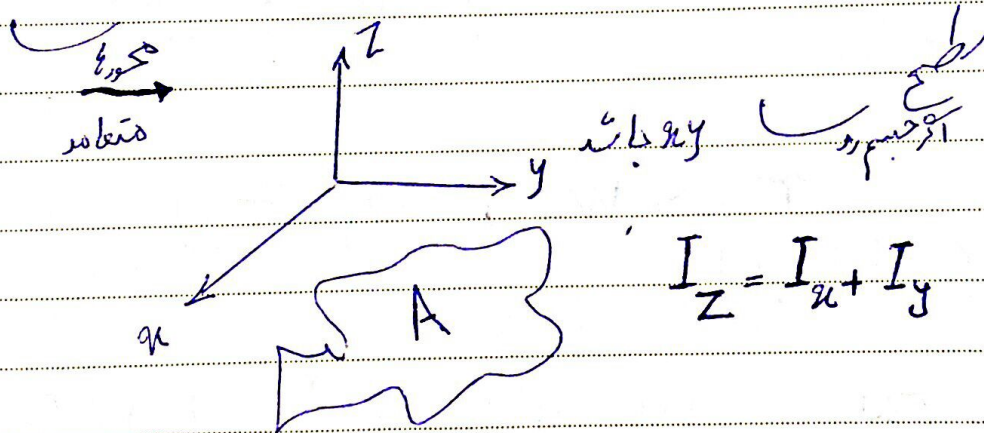 محورها
متعامد
Z
y
x
A
اگر جسم روی سطح
xy باشد
I_Z = I_x + I_y